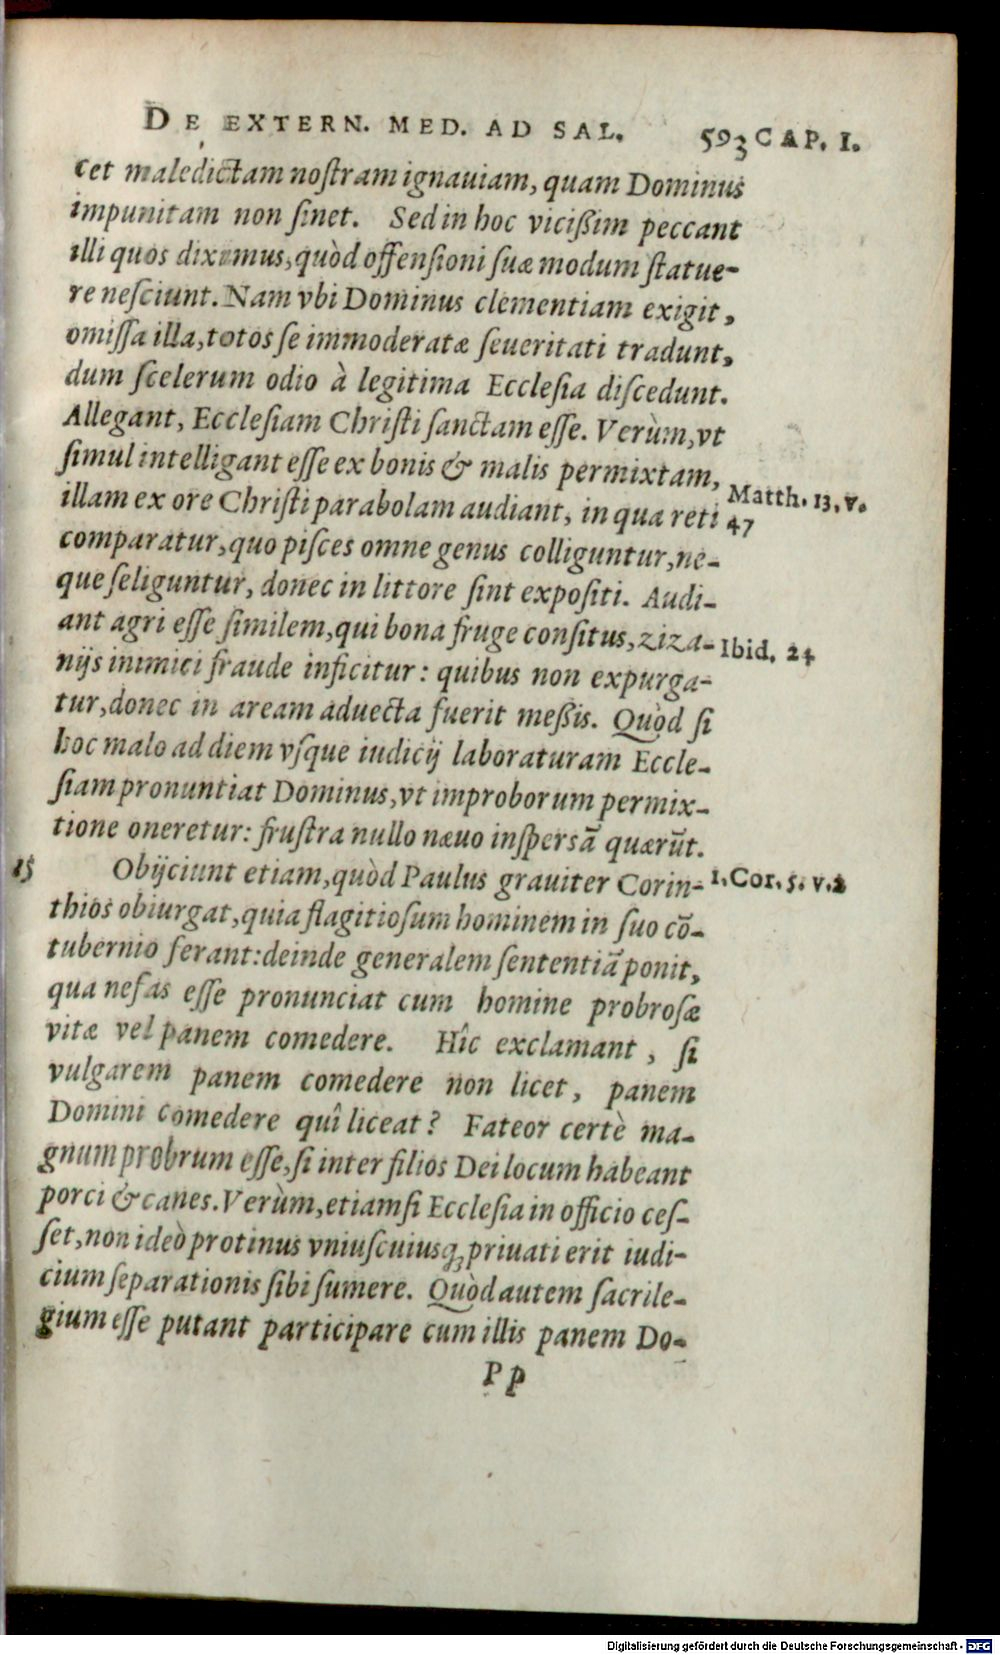 DE EXTERN. MED. AD SAL. 593 CAP. I.
cet maledictam noſtram ignauiam, quam Dominus
impunitam non ſinet. Sed in hoc viciſſim peccant
illi quos diximus, quòd offenſioni ſuæ modum ſtatue-
re neſciunt. Nam vbi Dominus clementiam exigit,
omiſſa illa, totos ſe immoderatæ ſeueritati tradunt,
dum ſcelerum odio à legitima Eccleſia diſcedunt.
Allegant, Eccleſiam Chriſti ſanctam eſſe. Verùm, vt
ſimul intelligant eſſe ex bonis & malis permixtam,
illam ex ore Chriſti parabolam audiant, in qua reti
Matth. 13. v.
47
comparatur, quo piſces omne genus colliguntur, ne-
que ſeliguntur, donec in littore ſint expoſiti. Audi-
ant agri eſſe ſimilem, qui bona fruge conſitus, ziza-
Ibid. 24
nijs inimici fraude inficitur: quibus non expurga-
tur, donec in aream aduecta fuerit meſſis. Quòd ſi
hoc malo ad diem vſque iudicij laboraturam Eccle-
ſiam pronuntiat Dominus, vt improborum permix-
tione oneretur: fruſtra nullo næuo inſperſã quærūt.
15 Obijciunt etiam, quòd Paulus grauiter Corin-
1. Cor. 5. v. 2
thios obiurgat, quia flagitioſum hominem in ſuo cō-
tubernio ferant: deinde generalem ſententiã ponit,
qua nefas eſſe pronunciat cum homine probroſæ
vitæ vel panem comedere. Hîc exclamant, ſi
vulgarem panem comedere non licet, panem
Domini comedere quî liceat? Fateor certè ma-
gnum probrum eſſe, ſi inter filios Dei locum habeant
porci & canes. Verùm, etiamſi Eccleſia in officio ceſ-
ſet, non ideò protinus vniuſcuiuſq; priuati erit iudi-
cium ſeparationis ſibi ſumere. Quòd autem ſacrile-
gium eſſe putant participare cum illis panem Do-
Pp
Digitalisierung gefördert durch die Deutsche Forschungsgemeinschaft - DFG